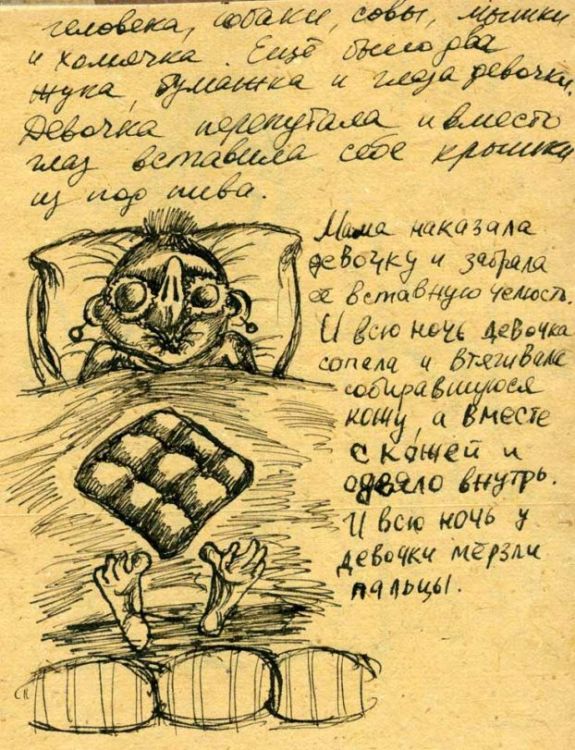 человека, собаки, совы, мышки
и хомячка. Ещё было два
жука, бумажка и глаза девочки.
Девочка перепутала и вместо
глаз вставила себе крышки
из под пива.
Мама наказала
девочку и забрала
её вставную челюсть.
И всю ночь девочка
сопела и втягивала
собиравшуюся
кожу, а вместе
с кожей и
одеяло внутрь.
И всю ночь у
девочки мёрзли
пальцы.